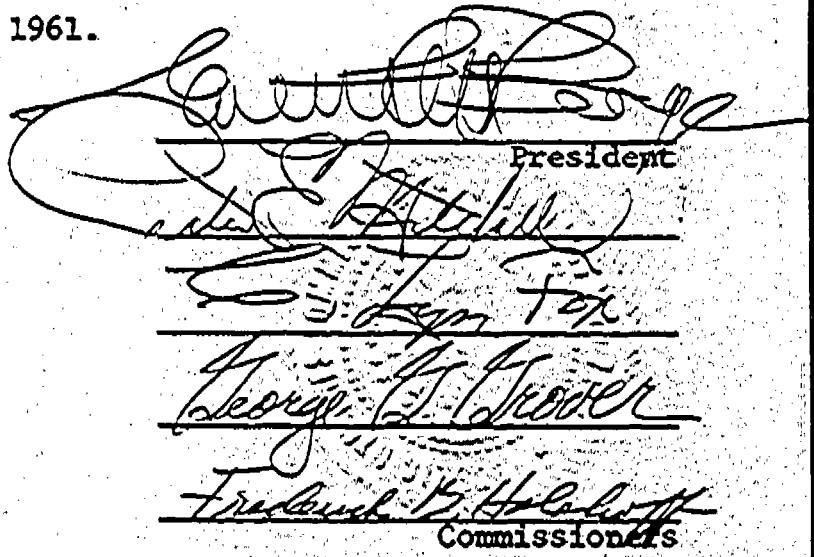 1961.
President
Peter E. Mitchell
C. Lyn Fox
George G. Grover
Frederick B. Holoboff
Commissioners